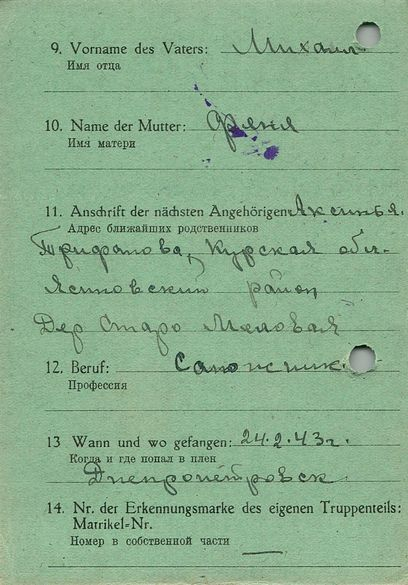 9. Vorname des Vaters: Михаил
Имя отца
10. Name der Mutter: Фряня
Имя матери
11. Anschrift der nächsten Angehörigen Аксинья
Адрес ближайших родственников
Трифанова, Курская обл-
район
Дер Старо Меловая
12. Beruf: Сапожник
Профессия
13 Wann und wo gefangen: 24.2.43г.
Когда и где попал в плен
Днепропетровск
14. Nr. der Erkennungsmarke des eigenen Truppenteils:
Matrikel-Nr.
Номер в собственной части —